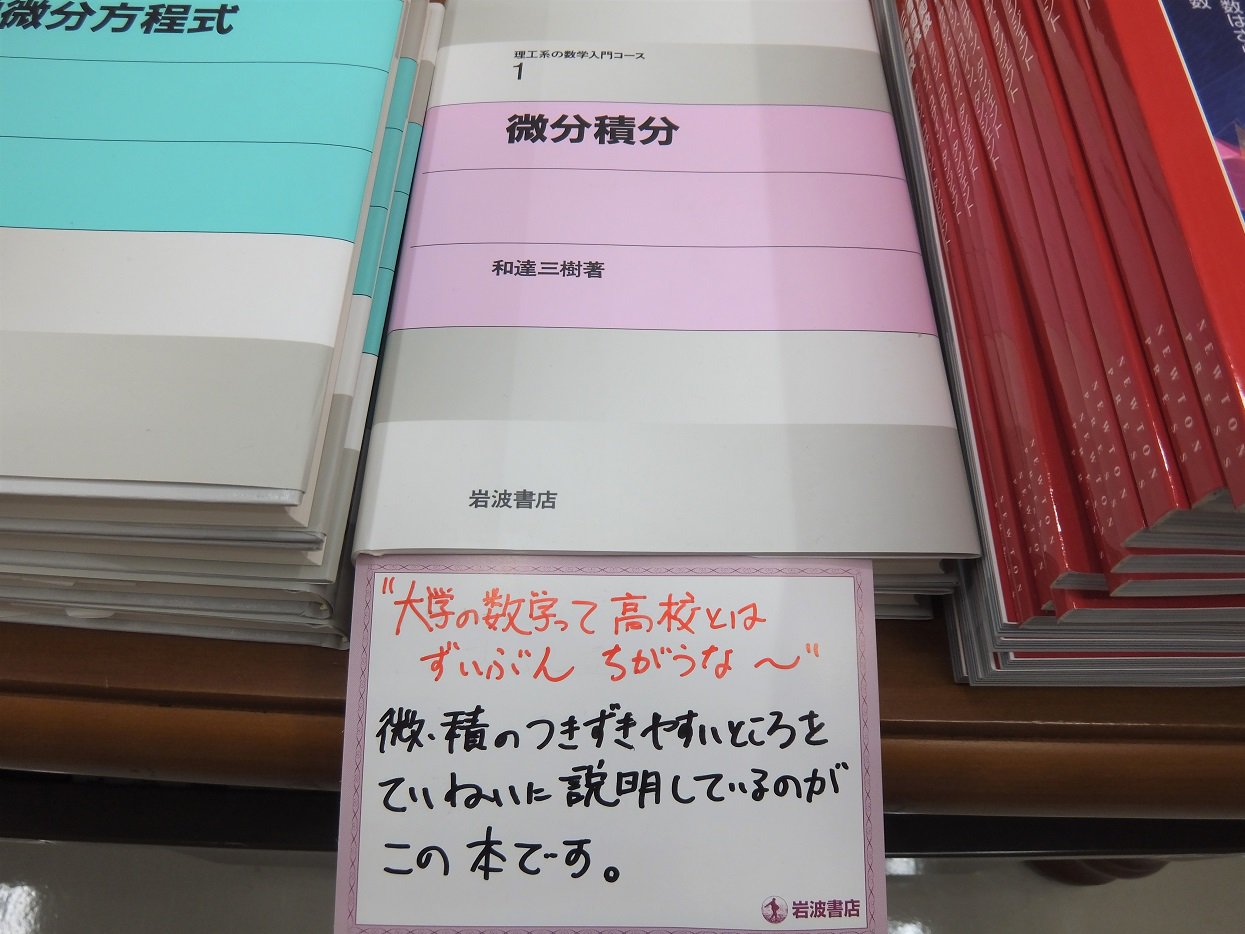 微分方程式
理工系の数学入門コース
1
微分積分
和達三樹著
岩波書店
"大学の数学って高校とは
ずいぶん ちがうな〜"
微・積のつきずきやすいところを
ていねいに説明しているのが
この本です。
岩波書店
数はさ
数
NEWTONS